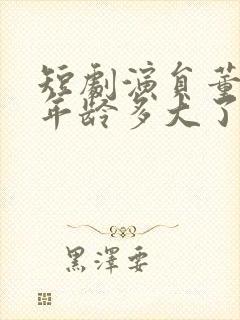 短劇演員董
年齡多大了
黑澤要